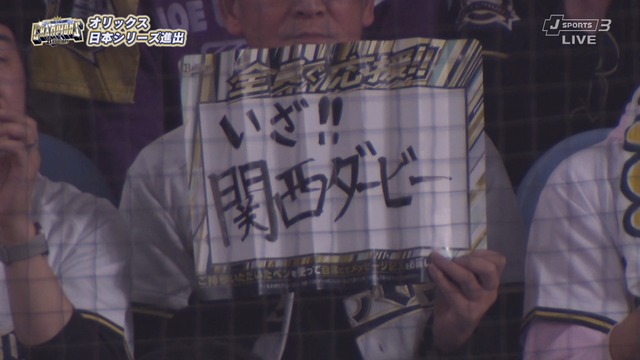 CHAMPIONS
オリックス
日本シリーズ進出
J SPORTS 3
LIVE
全員で応援!!
いざ!!
関西ダービー